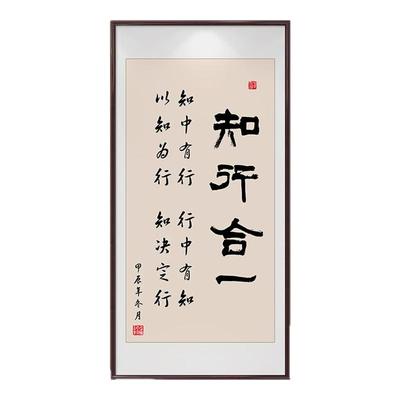 知行合一
知中有行 行中有知
以知为行 知决定行
甲辰年冬月